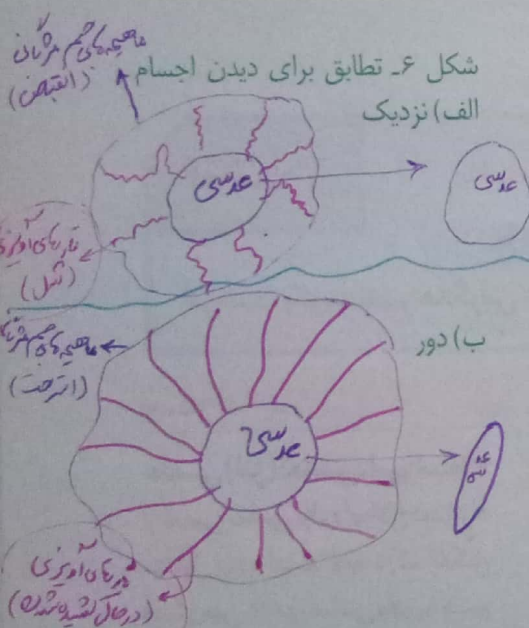 شکل ۶ـ تطابق برای دیدن اجسام
الف) نزدیک
ماهیچه‌های جسم مژگانی
(انقباض)
عدسی
عدسی
تارهای آویزی
(شل)
ب) دور
ماهیچه‌های جسم
(استراحت)
عدسی
عدسی
تارهای آویزی
(درحال کشیده شدن)